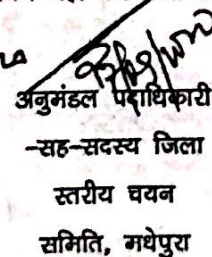 अनुमंडल पदाधिकारी
-सह-सदस्य जिला
स्तरीय चयन
समिति, मधेपुरा